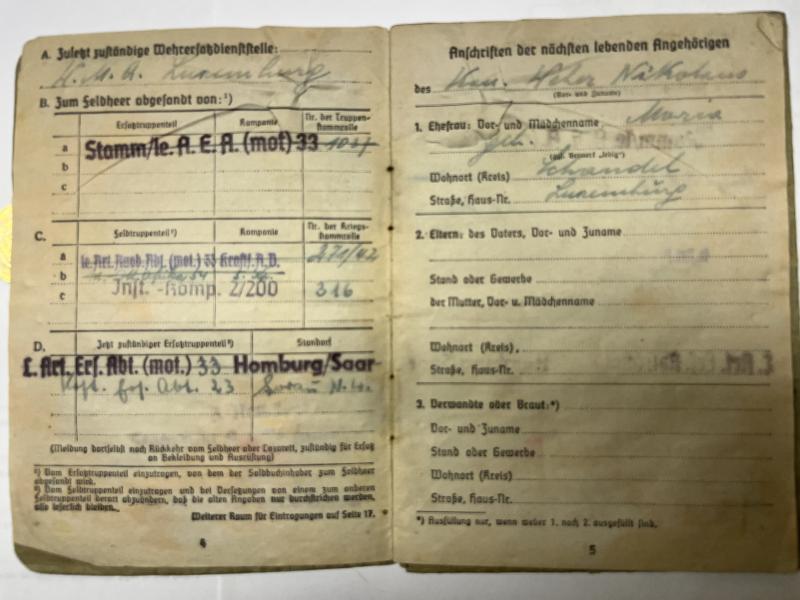 A. Zuletzt zuständige Wehrersatzdienststelle:
W. M. A. Luxemburg
B. Zum Feldheer abgesandt von:¹)
Ersatztruppenteil Kompanie Nr. der Truppenstammrolle
a Stamm/le. A. E. A. (mot) 33
b
c
C. Feldtruppenteil²) Kompanie Nr. der Kriegsstammrolle
a le. Art. Ausb. Abt. (mot.) 33 271/42
b
c Inst.-Komp. 2/200 316
D. Jetzt zuständiger Ersatztruppenteil²) Standort
L. Art. Ers. Abt. (mot.) 33 Homburg/Saar
Ers. Abt. 23 Sorau N.L.
(Meldung dortselbst nach Rückkehr vom Feldheer oder Lazarett, zuständig für Ersatz
an Bekleidung und Ausrüstung)
¹) Vom Ersatztruppenteil einzutragen, von dem der Soldbuchinhaber zum Feldheer
abgesandt wird.
²) Vom Feldtruppenteil einzutragen und bei Versetzungen von einem zum anderen
Feldtruppenteil derart abzuändern, daß die alten Angaben nur durchstrichen werden,
also leserlich bleiben.
Weiterer Raum für Eintragungen auf Seite 17.
4
Anschriften der nächsten lebenden Angehörigen
des Kan. Weber Nikolaus
(Vor- und Zuname)
1. Ehefrau: Vor- und Mädchenname Maria
geb.
(ggf. Vermerk „ledig“)
Wohnort (Kreis) Schandel
Straße, Haus-Nr. Luxemburg
2. Eltern: des Vaters, Vor- und Zuname
Stand oder Gewerbe
der Mutter, Vor- u. Mädchenname
Wohnort (Kreis)
Straße, Haus-Nr.
3. Verwandte oder Braut:*)
Vor- und Zuname
Stand oder Gewerbe
Wohnort (Kreis)
Straße, Haus-Nr.
*) Ausfüllung nur, wenn weder 1. noch 2. ausgefüllt sind.
5